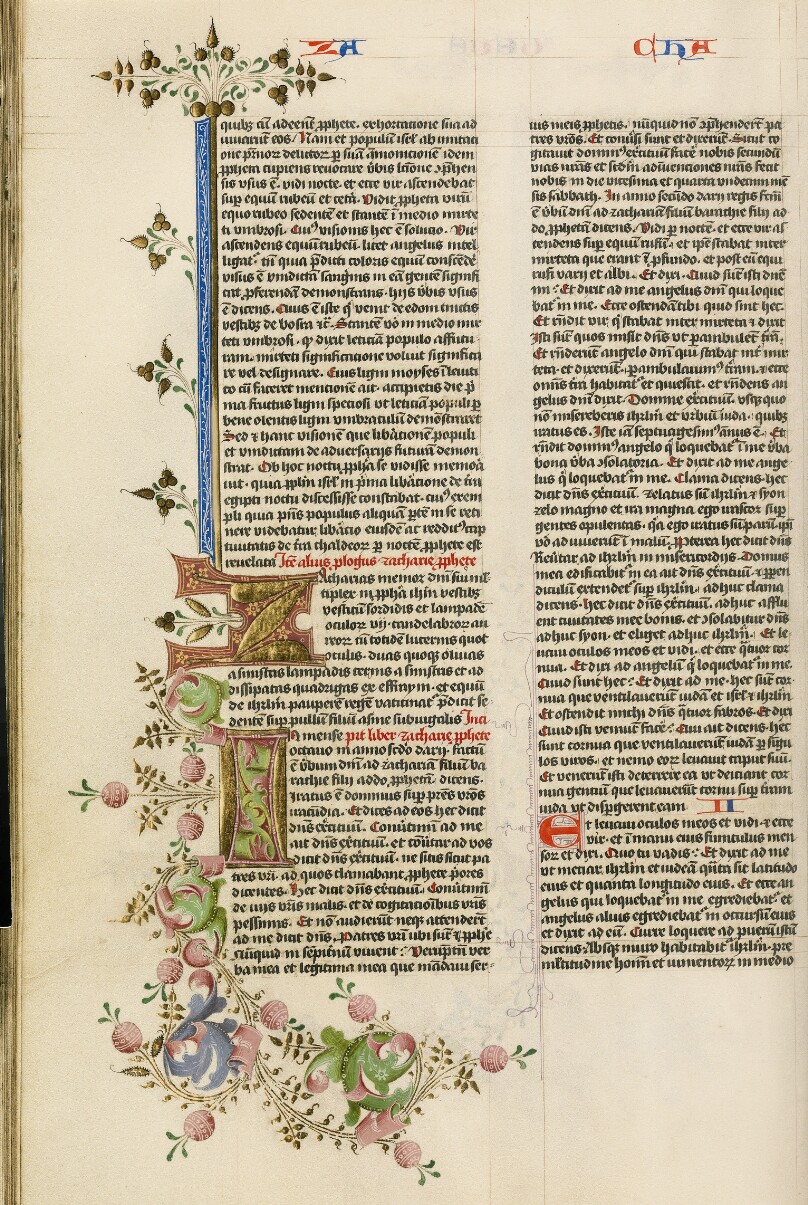 ZA CHA
quibz cū adeēnt ꝓphete. exhortatione sua ad
iuuarīt eos. Nam et populū isrl ab imitati
one pr̄nor delictor ꝑ suā āmonicionē idem
ꝓpheta cupiens reuocare v̄bis
sis vsus ē. vidi nocte. et ecce vir ascendebat
sup equū rubeū et cetera. Vidit ꝓpheta virū
equo rubeo sedentē et stantē ī medio mirte
ti vmbrosi. Cuiꝰ visionis hec ē solutio. Vir
ascendens equū rubeū. licet angelus intel
ligatꝰ. tn̄ qua p̄dicti coloris equū conscēdē
visus ē vindictā sangīnis in eā gentē signifi
cat ꝓferendā demonstrans. hijs v̄bis vsus
ē dicens. Quis ē iste q̄ venit de edom tinctis
vestibꝫ de bosra Stantē v̄o in medio mir
teti vmbrosi. qꝫ dixit leticiā populo affutu
ram. mirteti significatione voluit significa
re vel designare. Cuius ligni moyses
to cū faceret mentionē ait. accipietis die p̄
ma fructus ligni speciosi vt leticiā populi ꝑ
bene olentis ligni vmbraculū demonstraret
Sed ⁊ hanc visionē que lib̄ationē populi
et vindictam de aduersarijs futurā demon
strat. Ob hoc noctu ꝓpħa se vidisse memo
uit. quia pplm isrl in p̄ma lib̄atione de
egipti noctu discessisse constabat. cuiꝰ exem
pli quia pn̄s populus aliquā ꝑtē ī se reti
nere videbatur. lib̄atio eiusdē ac redditꝰ cap
tiuitatis de t̄ra chaldeor ꝑ noctē ꝓphete est
reuelata Itē alius ꝓlogus zacharie ꝓphete
Zacharias memor dn̄i sui mul
tiplex in ꝓphia ihm̄ vestibꝫ
vestitū sordidis et lampade
oculor vij. candelabror au
reor cū totidē lucernis quot
oculis. duas quoqꝫ oliuas
a sinistris lampadis cernis a sinistris et ad
dissipatas quadrigas ex effraym. et equū
de ihrlm̄ pauperē regē vaticinatꝰ p̄dicit se
dentē suꝑ pullū filiū asine subiugalis Inci
In mense pit liber zacharie ꝓphete
octauo in anno scdo darij. factū
ē v̄bum dn̄i ad zachariā filiū ba
rachie filij addo ꝓphetā dicens.
iratus ē dominus suꝑ pr̄es vr̄os
iracūdia. Et dices ad eos hec dicit
dn̄s exercituū. Conūtimī ad me
ait dn̄s exercituū. et cōūtar ad vos
dicit dn̄s exercituū. ne sitis sicut pa
tres vr̄i. ad quos clamabant ꝓphete p̄ores
dicentes. Hec dicit dn̄s exercituū. Conūtimī
de vijs vr̄is malis. et de cogitacionibus vr̄is
pessimis. Et nō audierūt neqꝫ attenderūt
ad me dicit dn̄s. Patres vr̄i ubi sūt ⁊ ꝓphē
nūquid in sempiternū viuent? Veruptn̄ ver
ba mea et legitima mea que mandaui ser
uis meis ꝓphetis. nūquid nō ꝯp̄henderūt pa
tres vr̄os. Et conūsi sunt et dixerūt. Sicut co
gitauit dominꝰ exercituū facē nobis secundū
vias nr̄as et scdm adinuentiones nr̄as fecit
nobis in die vicesima et quarta vndecimi mē
sis sabbath. In anno secūdo darij regis fcm̄
ē v̄bū dn̄i ad zachariā filiū barachie filij ad
do ꝓphetā dicens. Vidi ꝑ noctē. et ecce vir as
cendens suꝑ equū rufū. et ip̄e stabat inter
mirteta que erant ī ꝓfundo. et post eū equi
rufi varij et albi. Et dixi. Quid sūt isti dn̄e
mi? Et dixit ad me angelus dn̄i qui loque
batꝰ in me. Ecce ostendā tibi quid sint hec.
Et rn̄dit vir q̄ stabat inter mirteta ⁊ dixit
Isti sūt quos misit dn̄s vt ꝑambulēt t̄rā.
Et rn̄derūt angelo dn̄i qui stabat int̄ mir
teta. et dixerūt. ꝑambulauimꝰ t̄ram. ⁊ ecce
omnis t̄ra habitatꝰ et quiescit. et rn̄dens an
gelus dn̄i dixit. Domine exercituū. vsqꝫquo
nō misereberis ihrlm̄ et vrbiū iuda. quibꝫ
iratus es. Iste iā septuagesimꝰ annus ē. Et
rn̄dit dominꝰ angelo q̄ loquebatꝰ ī me v̄ba
bona v̄ba ꝯsolatoria. Et dixit ad me ange
lus q̄ loquebatꝰ in me. Clama dicens. hec
dicit dn̄s exercituū. Zelatus sū ihrlm̄ ⁊ syon
zelo magno et ira magna ego irascor suꝑ
gentes opulentas. qa ego iratus sū parū. ipi
v̄o adiuuerūt ī malū. Ppterea hec dicit dn̄s
Reūtar ad ihrlm̄ in misericordijs. Domus
mea edificabitꝰ in ea ait dn̄s exercituū. ⁊ ꝑpen
diculū extendetꝰ suꝑ ihrlm̄. adhuc clama
dicens. hec dicit dn̄s exercituū. adhuc afflu
ent ciuitates mee bonis. et ꝯsolabitur dn̄s
adhuc syon. et eliget adhuc ihrlm̄. Et le
uaui oculos meos et vidi. et ecce q̄tuor cor
nua. Et dixi ad angelū q̄ loquebatꝰ in me.
Quid sunt hec? Et dixit ad me. hec sūt cor
nua que ventilauerūt iudā et isrl ⁊ ihrlm̄
Et ostendit michi dn̄s q̄tuor fabros. Et dixi
Quid isti veniūt facē? Qui ait dicens. hec
sunt cornua que ventilauerūt iudā ꝑ singu
los viros. et nemo eor leuauit caput suū.
Et venerūt isti deterrere ea vt deiciant cor
nua gentiū que leuauerūt cornu suꝑ tram
iuda vt dispergerent eam II
Et leuaui oculos meos et vidi. ⁊ ecce
vir. et ī manu eius funiculus men
sor et dixi. Quo tu vadis? Et dixit ad me
vt meciar ihrlm̄ et videā q̄nta sit latitudo
eius et quanta longitudo eius. Et ecce an
gelus qui loquebatꝰ in me egrediebatꝰ et
angelus alius egrediebatꝰ in occursū eius
et dixit ad eū. Curre loquere ad puerū istū
dicens. Absqꝫ muro habitabitꝰ ihrlm̄. pre
mltitudine hoīm et iumentor in medio